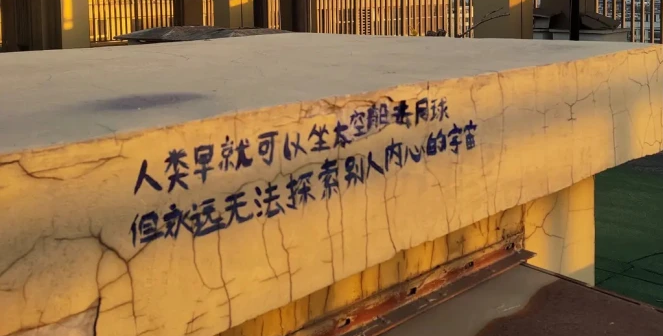 人类早就可以坐太空船去月球
但永远无法探索别人内心的宇宙